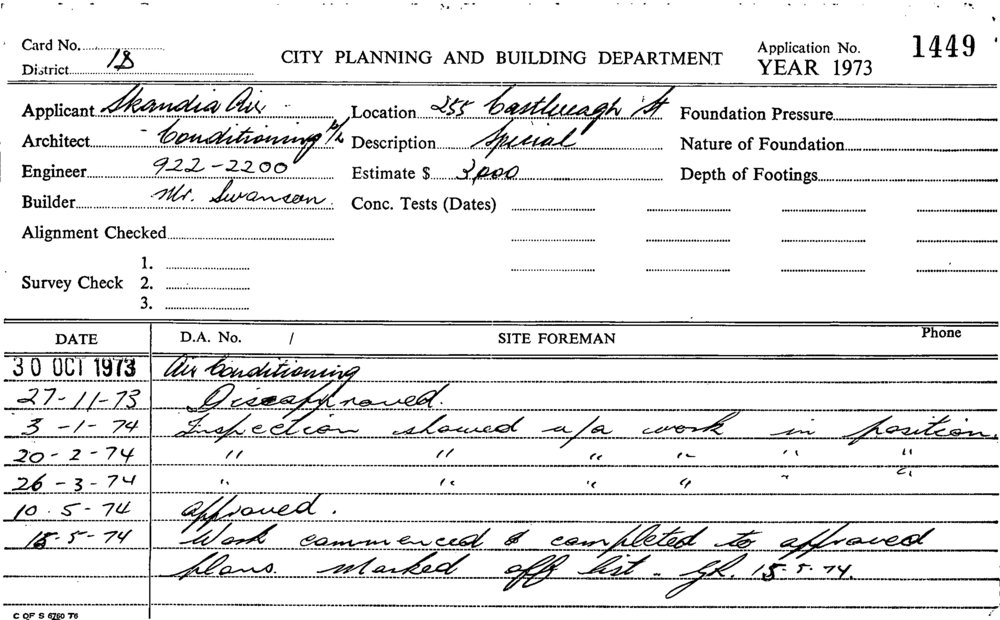 Card No.
District 18
CITY PLANNING AND BUILDING DEPARTMENT
Application No. 1449
YEAR 1973
Applicant Skandia Air
Location 255 Castlereagh St
Foundation Pressure
Architect - Conditioning P/L
Description Special
Nature of Foundation
Engineer 922-2200
Estimate $ 3,000
Depth of Footings
Builder Mr. Swanson.
Conc. Tests (Dates)
Alignment Checked
Survey Check
1.
2.
3.
DATE D.A. No. / SITE FOREMAN Phone
30 OCT 1973 Air Conditioning
27-11-73 Disapproved.
3-1-74 Inspection showed u/a work in position.
20-2-74 " " " " " "
26-3-74 " " " " " "
10.5-74 approved.
15-5-74 Work commenced & completed to approved
plans. Marked off list - 15-5-74.
C OF S 6760 T6